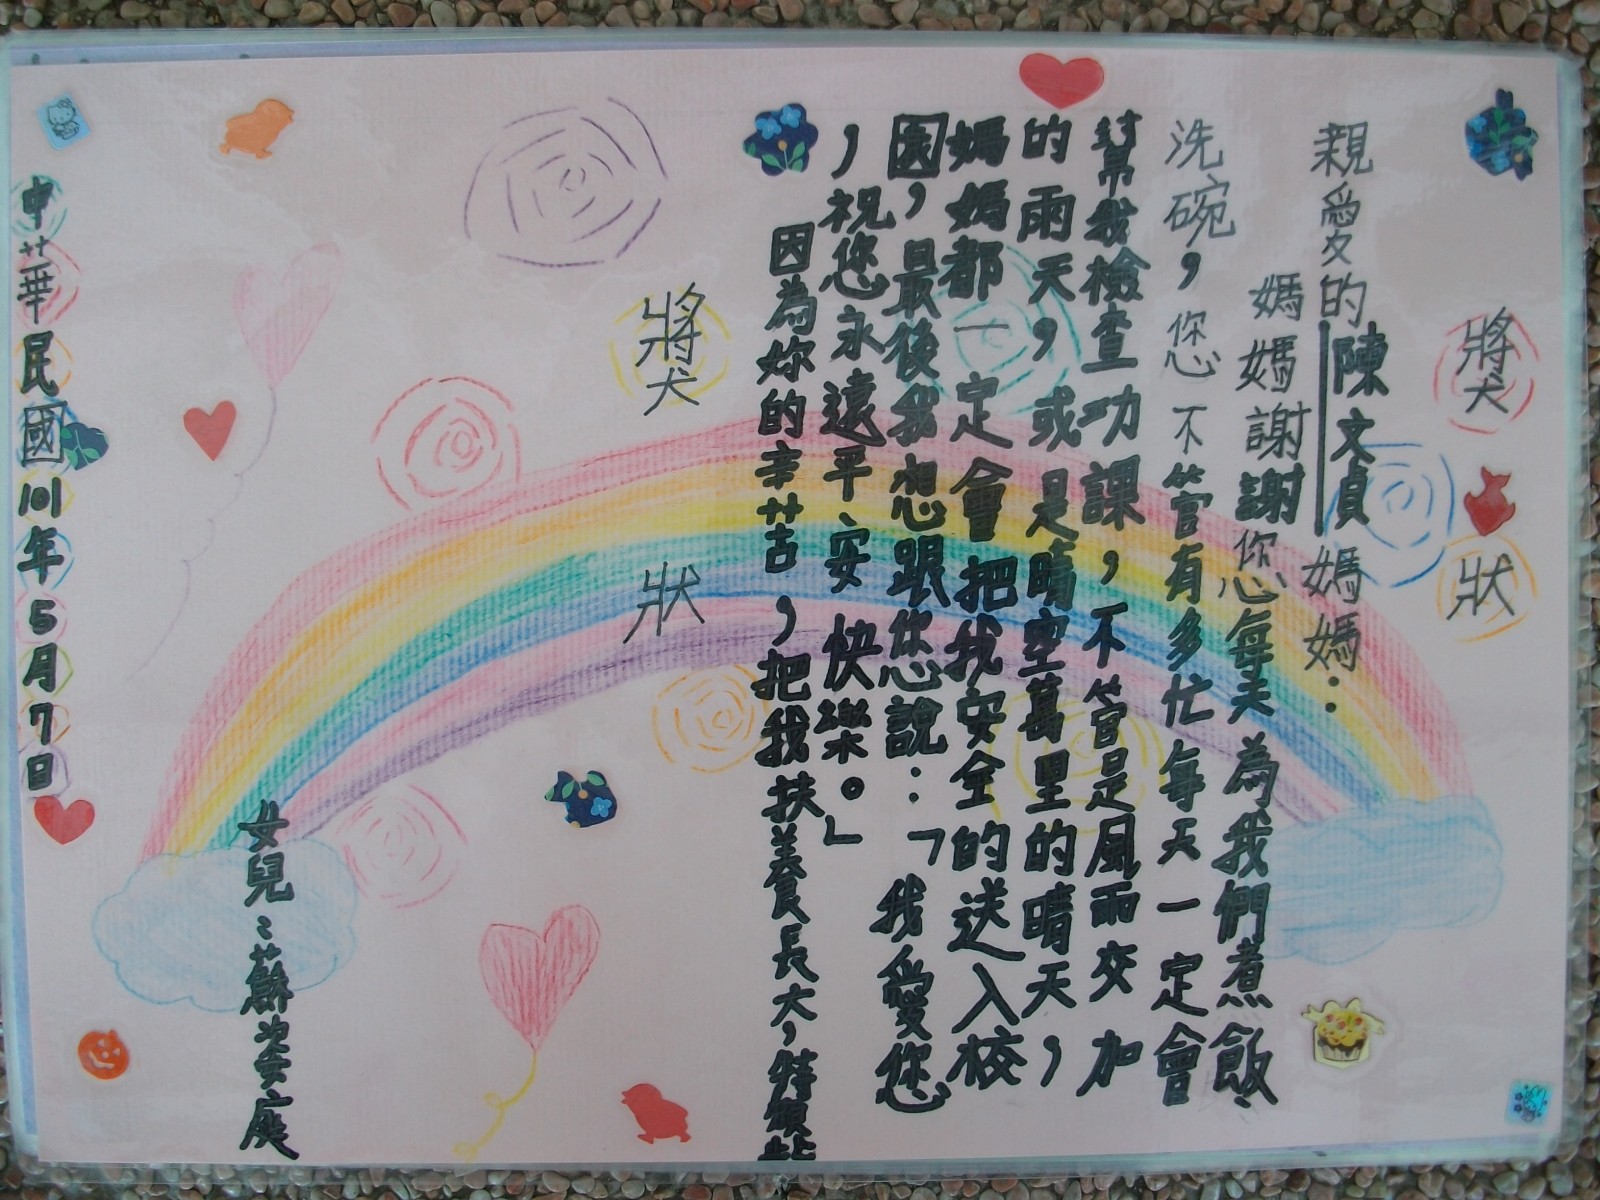 獎狀
親愛的陳文貞媽媽：
媽媽謝謝您每天為我們煮飯、
洗碗，您不管有多忙每天一定會
幫我檢查功課，不管是風雨交加
的雨天，或是晴空萬里的晴天，
媽媽都一定會把我安全的送入校
園，最後我想跟您說：「我愛您
，祝您永遠平安 快樂。」
因為妳的辛苦，把我扶養長大，特頒此
獎狀
女兒：蘇姿庭
中華民國101年5月7日